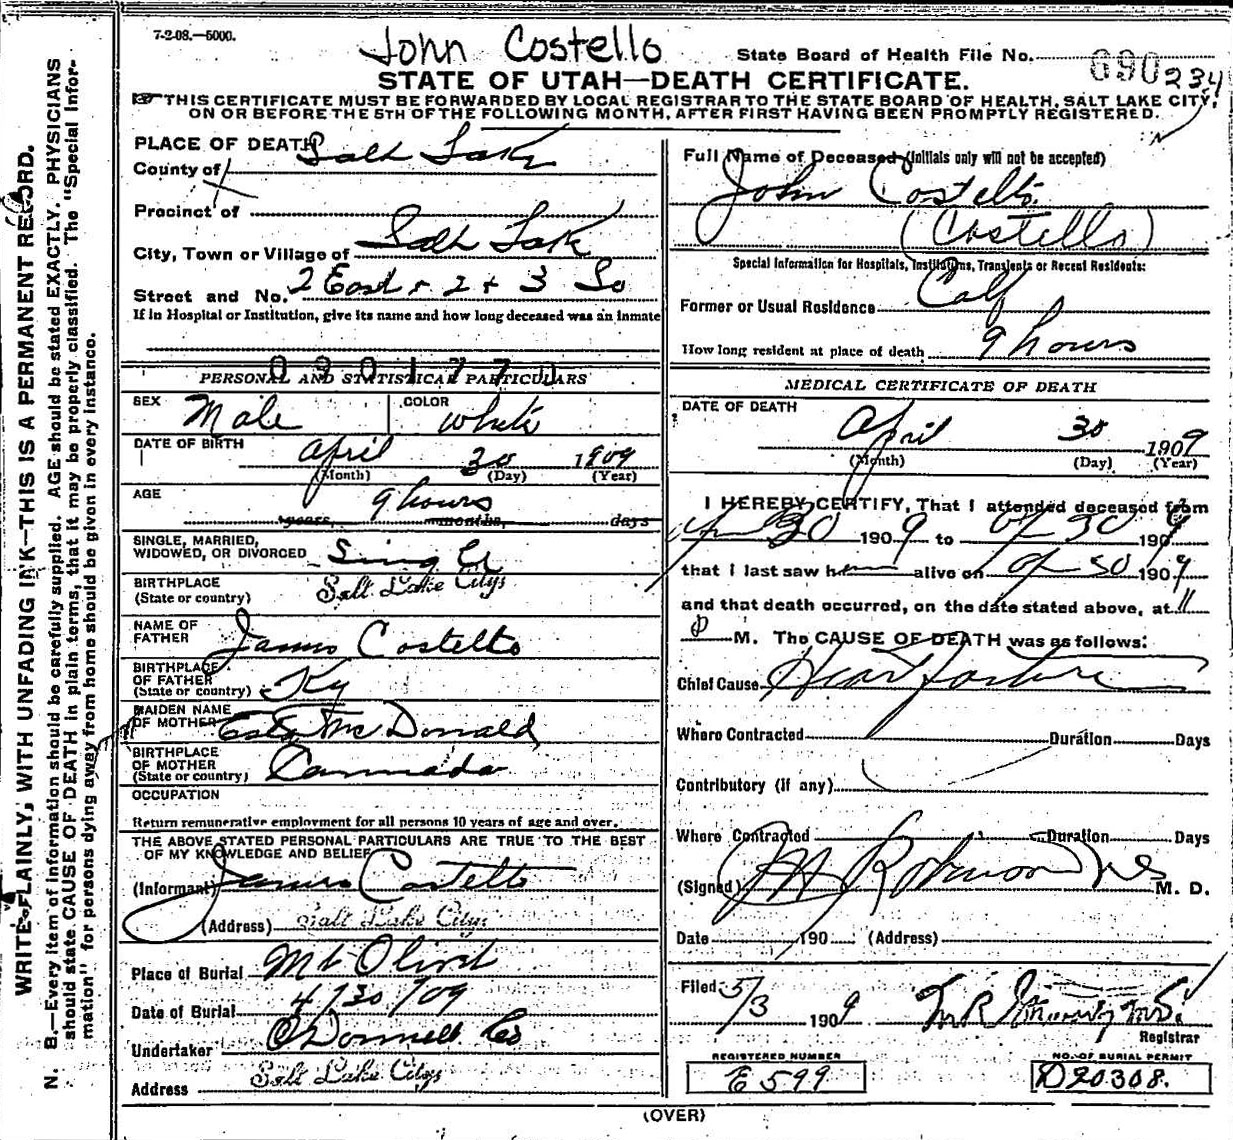 7-2-08.—5000.
John Costello
State Board of Health File No. 690 234
STATE OF UTAH—DEATH CERTIFICATE.
THIS CERTIFICATE MUST BE FORWARDED BY LOCAL REGISTRAR TO THE STATE BOARD OF HEALTH, SALT LAKE CITY,
ON OR BEFORE THE 5TH OF THE FOLLOWING MONTH, AFTER FIRST HAVING BEEN PROMPTLY REGISTERED.
WRITE PLAINLY, WITH UNFADING INK—THIS IS A PERMANENT RECORD.
N. B.—Every item of information should be carefully supplied. AGE should be stated EXACTLY. PHYSICIANS
should state CAUSE OF DEATH in plain terms, that it may be properly classified. The "Special Infor-
mation" for persons dying away from home should be given in every instance.
PLACE OF DEATH
County of Salt Lake
Precinct of
City, Town or Village of Salt Lake
Street and No. 2 East 2 + 3 So
If in Hospital or Institution, give its name and how long deceased was an inmate
PERSONAL AND STATISTICAL PARTICULARS
SEX Male COLOR White
DATE OF BIRTH April 30 1909
(Month) (Day) (Year)
AGE 9 hours
years, months, days
SINGLE, MARRIED,
WIDOWED, OR DIVORCED Single
BIRTHPLACE
(State or country) Salt Lake City
NAME OF
FATHER James Costello
BIRTHPLACE
OF FATHER
(State or country) Ky
MAIDEN NAME
OF MOTHER McDonald
BIRTHPLACE
OF MOTHER
(State or country) Cannada
OCCUPATION
Return remunerative employment for all persons 10 years of age and over.
THE ABOVE STATED PERSONAL PARTICULARS ARE TRUE TO THE BEST
OF MY KNOWLEDGE AND BELIEF
(Informant) James Costello
(Address) Salt Lake City
Place of Burial Mt Olivet
Date of Burial 4/30/09
Undertaker O'Donnell Co
Address Salt Lake City
Full Name of Deceased (Initials only will not be accepted)
John Costello
(Costello)
Special Information for Hospitals, Institutions, Transients or Recent Residents:
Former or Usual Residence
How long resident at place of death 9 hours
MEDICAL CERTIFICATE OF DEATH
DATE OF DEATH
April 30 1909
(Month) (Day) (Year)
I HEREBY CERTIFY, That I attended deceased from
Apr 30 1909 to Ap 30 1909
that I last saw h alive on Ap 30 1909
and that death occurred, on the date stated above, at 11
P M. The CAUSE OF DEATH was as follows:
Chief Cause Heart
Where Contracted Duration Days
Contributory (if any)
Where Contracted Duration Days
(Signed) Robinson M. D.
Date 190 (Address)
Filed 5/3 1909
Registrar
REGISTERED NUMBER
E 599
NO. OF BURIAL PERMIT
D20308.
(OVER)